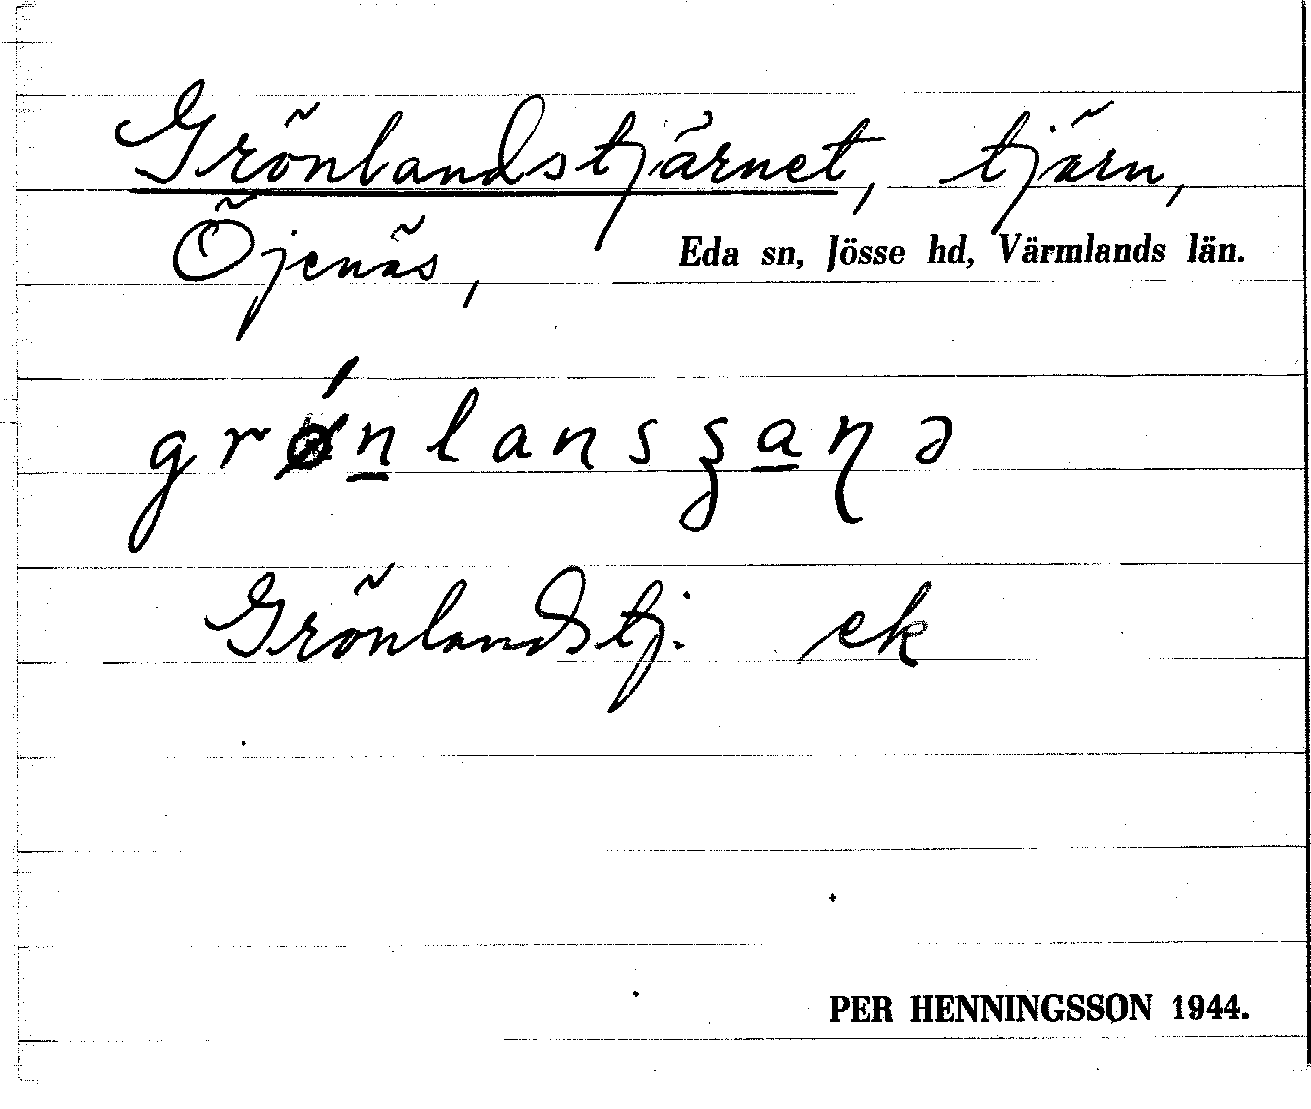 Grönlandstjärnet, tjärn,
Öjenäs, Eda sn, Jösse hd, Värmlands län.
grǿn̲lansʂa̲ɳə
Grönlandstj. ek
PER HENNINGSSON 1944.